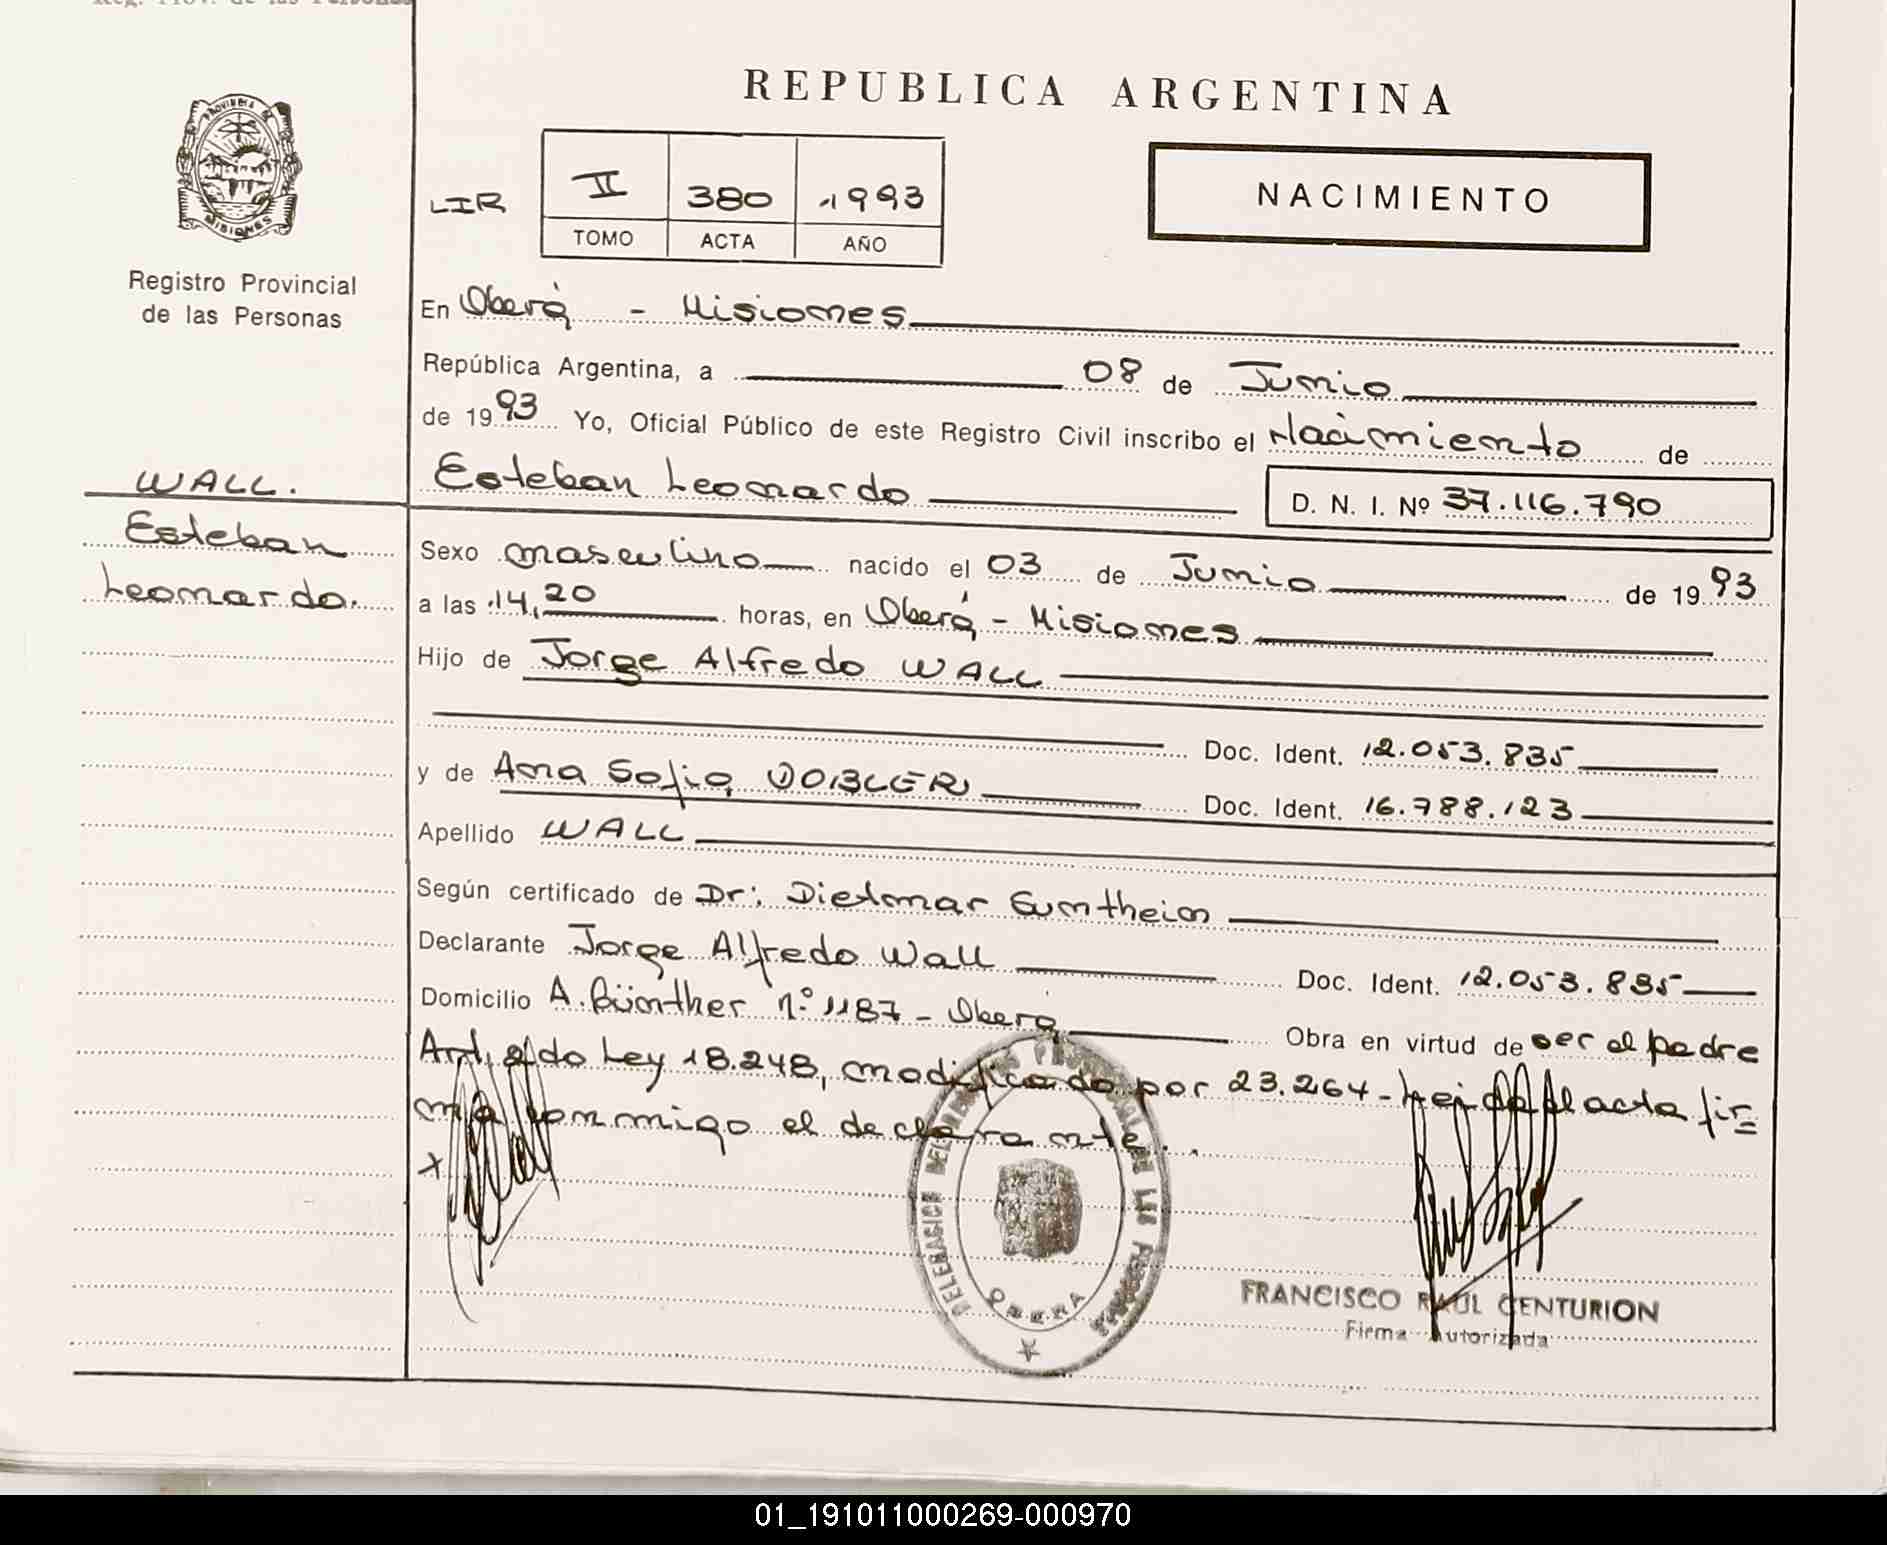 REPUBLICA ARGENTINA
PROVINCIA DE MISIONES
Registro Provincial
de las Personas
LIR
II 380 1993
TOMO ACTA AÑO
NACIMIENTO
En Oberá - Misiones
República Argentina, a 08 de Junio
de 1993 Yo, Oficial Público de este Registro Civil inscribo el Nacimiento de
Esteban Leonardo D. N. I. Nº 37.116.790
WALL.
Esteban
Leonardo.
Sexo masculino nacido el 03 de Junio de 1993
a las 14,20 horas, en Oberá - Misiones
Hijo de Jorge Alfredo WALL
Doc. Ident. 12.053.835
y de Ana Sofia DOBLER Doc. Ident. 16.788.123
Apellido WALL
Según certificado de Dr: Dietmar Guntheim
Declarante Jorge Alfredo Wall Doc. Ident. 12.053.835
Domicilio A. Günther nº 1187 - Oberá Obra en virtud de ser el padre
Art. 2do Ley 18.248, modificado por 23.264 - Leida el acta fir=
ma conmigo el declarante.
x
DELEGACION DEL REGISTRO PROVINCIAL DE LAS PERSONAS
OBERA
FRANCISCO RAUL CENTURION
Firma Autorizada
01_191011000269-000970